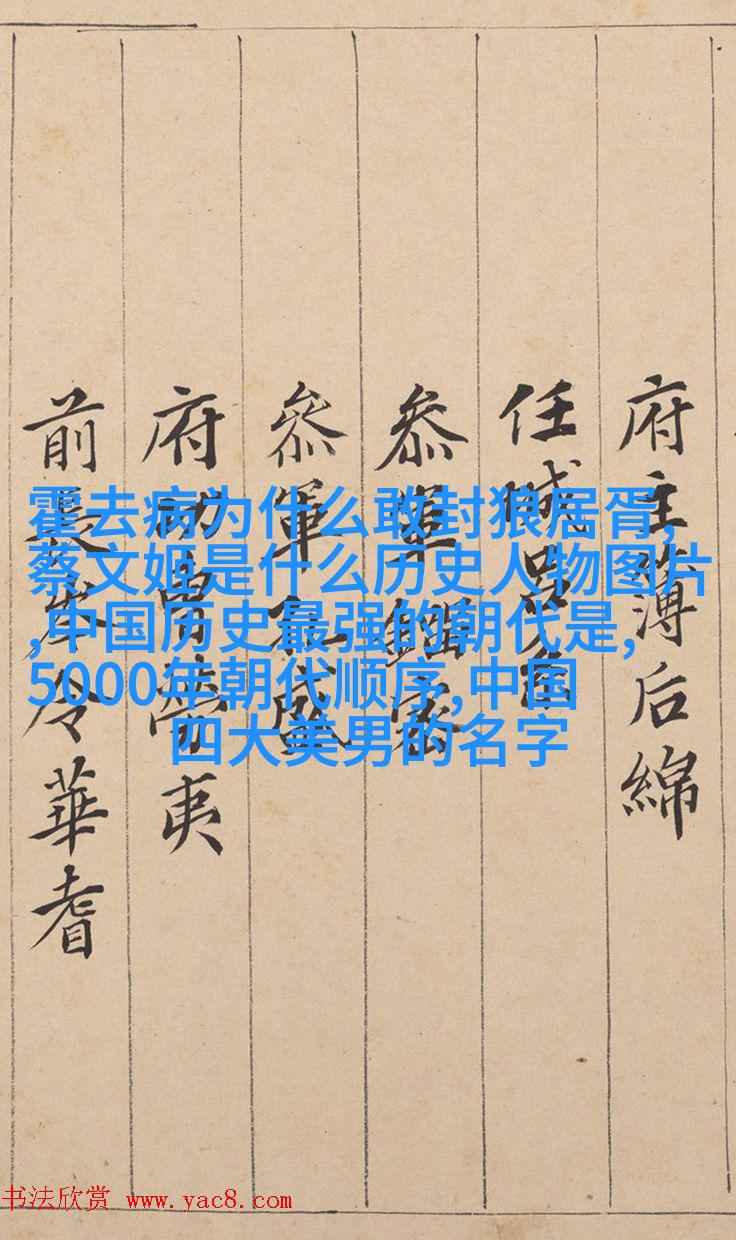 府主簿后綿
任城呂
参軍
叅軍孔盛
府功曹勞夷
前長岑令華耆
霍去病为什么敢封狼居胥,
蔡文姬是什么历史人物图片
,中国历史最强的朝代是,
5000年朝代顺序,中国
四大美男的名字
书法欣赏 www.yac8.com